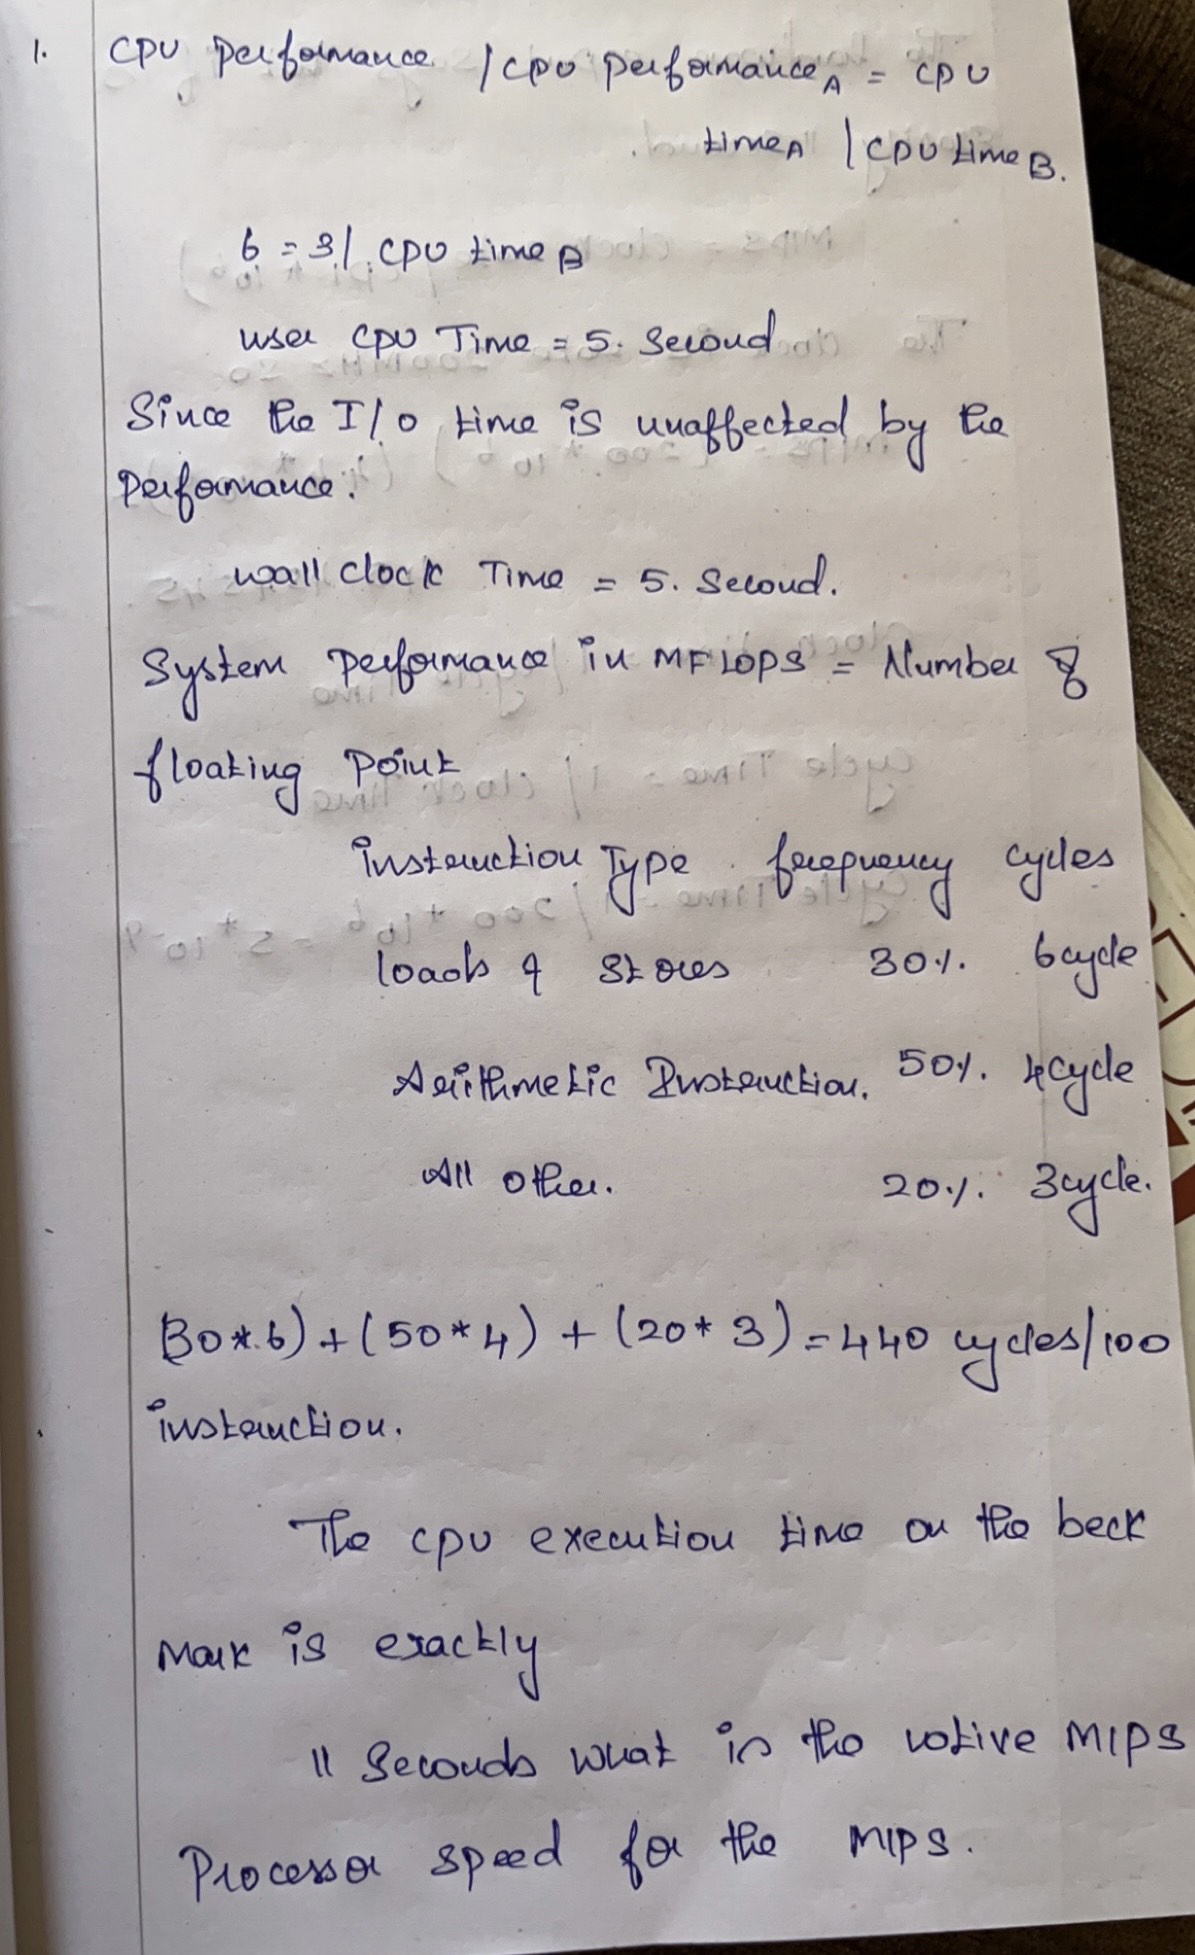 1. CPU Performance / CPU PerformanceA = CPU
timeA / CPU time B.
6 = 3/ CPU time B
user CPU Time = 5. Second
Since the I/O time is unaffected by the
Performance.
wall clock Time = 5. Second.
System Performance in MFLOPS = Number of
floating Point
instruction Type frequency cycles
loads & Stores 30%. 6cycle
Arithmetic Instruction. 50%. 4cycle
All other. 20%. 3cycle.
(30*6)+(50*4)+(20*3)=440 cycles/100
instruction.
The CPU execution time on the beck
Mark is exactly
11 Seconds what is the votive MIPS
Processor speed for the MIPS.